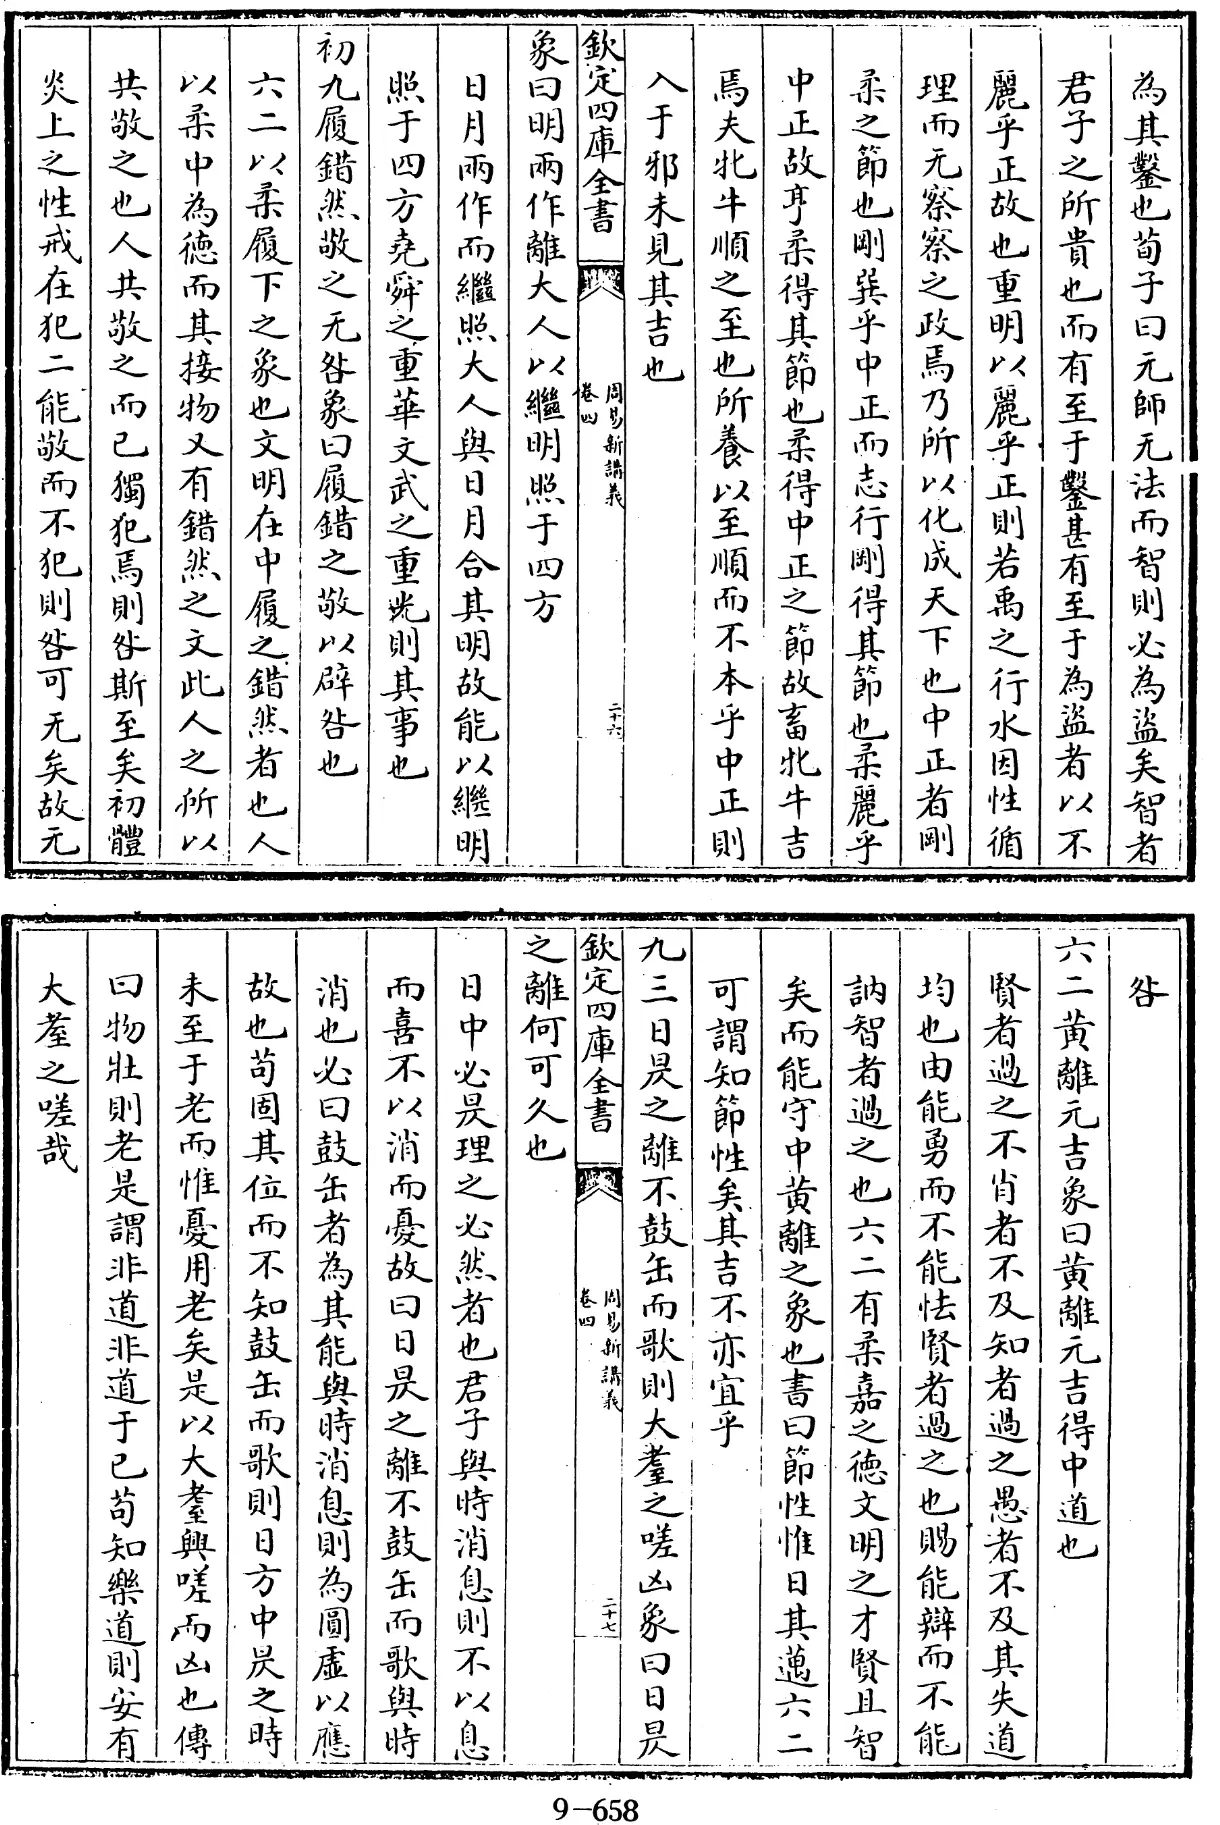 為其鑿也荀子曰无師无法而智則必為盜矣智者
君子之所貴也而有至于鑿甚有至于為盜者以不
麗乎正故也重明以麗乎正則若禹之行水因性循
理而无察察之政焉乃所以化成天下也中正者剛
柔之節也剛巽乎中正而志行剛得其節也柔麗乎
中正故亨柔得其節也柔得中正之節故畜牝牛吉
焉夫牝牛順之至也所養以至順而不本乎中正則
入于邪未見其吉也
欽定四庫全書
周易新講義
卷四
二十六
象曰明兩作離大人以繼明照于四方
日月兩作而繼照大人與日月合其明故能以繼明
照于四方堯舜之重華文武之重光則其事也
初九履錯然敬之无咎象曰履錯之敬以辟咎也
六二以柔履下之象也文明在中履之錯然者也人
以柔中為德而其接物又有錯然之文此人之所以
共敬之也人共敬之而已獨犯焉則咎斯至矣初體
炎上之性戒在犯二能敬而不犯則咎可无矣故无
咎
六二黃離元吉象曰黃離元吉得中道也
賢者過之不肖者不及知者過之愚者不及其失道
均也由能勇而不能怯賢者過之也賜能辯而不能
訥智者過之也六二有柔嘉之德文明之才賢且智
矣而能守中黃離之象也書曰節性惟日其邁六二
可謂知節性矣其吉不亦宜乎
九三日昃之離不鼓缶而歌則大耋之嗟凶象曰日昃
欽定四庫全書
周易新講義
卷四
二十七
之離何可久也
日中必昃理之必然者也君子與時消息則不以息
而喜不以消而憂故曰日昃之離不鼓缶而歌與時
消也必曰鼓缶者為其能與時消息則為圓虛以應
故也苟固其位而不知鼓缶而歌則日方中昃之時
未至于老而惟憂用老矣是以大耋興嗟而凶也傳
曰物壯則老是謂非道非道于已苟知樂道則安有
大耋之嗟哉
9-658